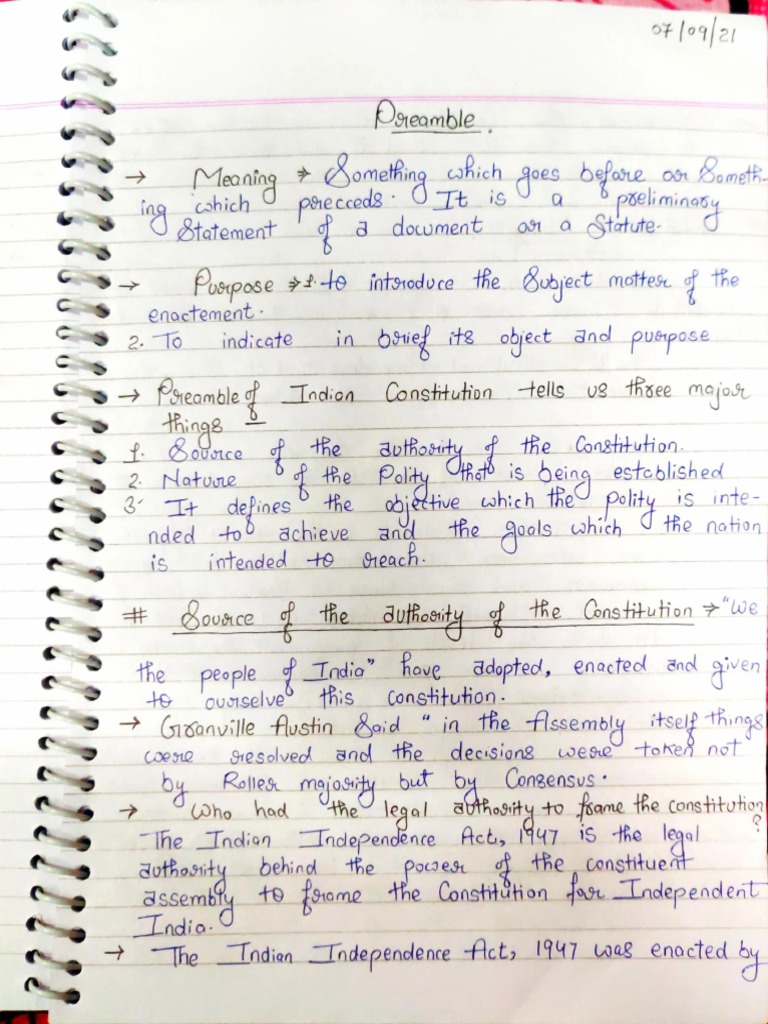 07/09/21
Preamble.
→ Meaning ⇒ Something which goes before or Someth-
ing which precceds. It is a preliminary
Statement of a document or a Statute.
→ Purpose ⇒ 1. to introduce the Subject matter of the
enactement.
2. To indicate in brief its object and purpose
→ Preamble of Indian Constitution tells us three major
things -
1. Source of the authority of the Constitution.
2. Nature of the Polity that is being established
3. It defines the objective which the polity is inte-
nded to achieve and the goals which the nation
is intended to reach.
# Source of the authority of the Constitution ⇒ "We
the people of India" have adopted, enacted and given
to ourselve this constitution.
→ Granville Austin Said " in the Assembly itself things
were resolved and the decisions were taken not
by Roller majority but by Consensus.
→ Who had the legal authority to frame the constitution?
The Indian Independence Act, 1947 is the legal
authority behind the power of the constituent
assembly to frame the Constitution for Independent
India.
→ The Indian Independence Act, 1947 was enacted by